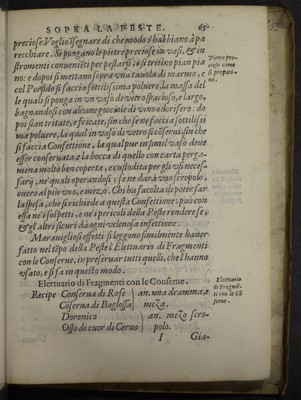 SOPRA LA PESTE. 65
preciose. Voglio ĩsegnare di che modo s'habbiano à pa
recchiare. Si pongano le pietre preciose in vasi, & in
stromenti conueniẽti per pestarsi, e si tritino pian pia
no: e dopoi si mettano sopra vna tauola di marmo, e
col Porfido si faccia sottilissima poluere, la massa del
le quali si ponga in vn vaso di vetro spacioso, e largo,
bagnandosi con alcune gocciole di vino odorifero: do
poi siano tritate, e fricate, sin che se ne faccia sottilissi
ma poluere, la qual in vaso di vetro si cõserui, sin che
si faccia Confettione, la qual pur in simil vaso deue
esser conseruata, e la bocca di quello con carta perga-
mena molto ben coperta, e custodita per gli vsi neces-
sarij, ne'quali operandosi, se ne darà vno scropolo,
ouero al più vno, e mezo. Chi ha facoltà di poter far
la spesa, che si richiede a questa Confettione, può con
essa ne'sospetti, e ne'pericoli della Peste rendere se,
& gl'altri sicuri da ogni velenosa infettione.
Marauigliosi effetti si leggono similmente hauer
fatto nel tẽpo della Peste l'Elettuario di Fragmenti
con le Conserue, in preseruar tutti quelli, che l'hanno
vsato, e si fa in questo modo.
Elettuario di Fragmenti con le Conserue.
Recipe Conserua di Rose an. vna dramma, e
Coserua di Buglossa meza.
Doronico an. mezo scro-
Osso di cuor di Ceruo polo.
I Gia-
Pietre pre
ciose come
si prepari-
no.
Elettuario
di Fragmẽ
ti con le Cõ
serue.